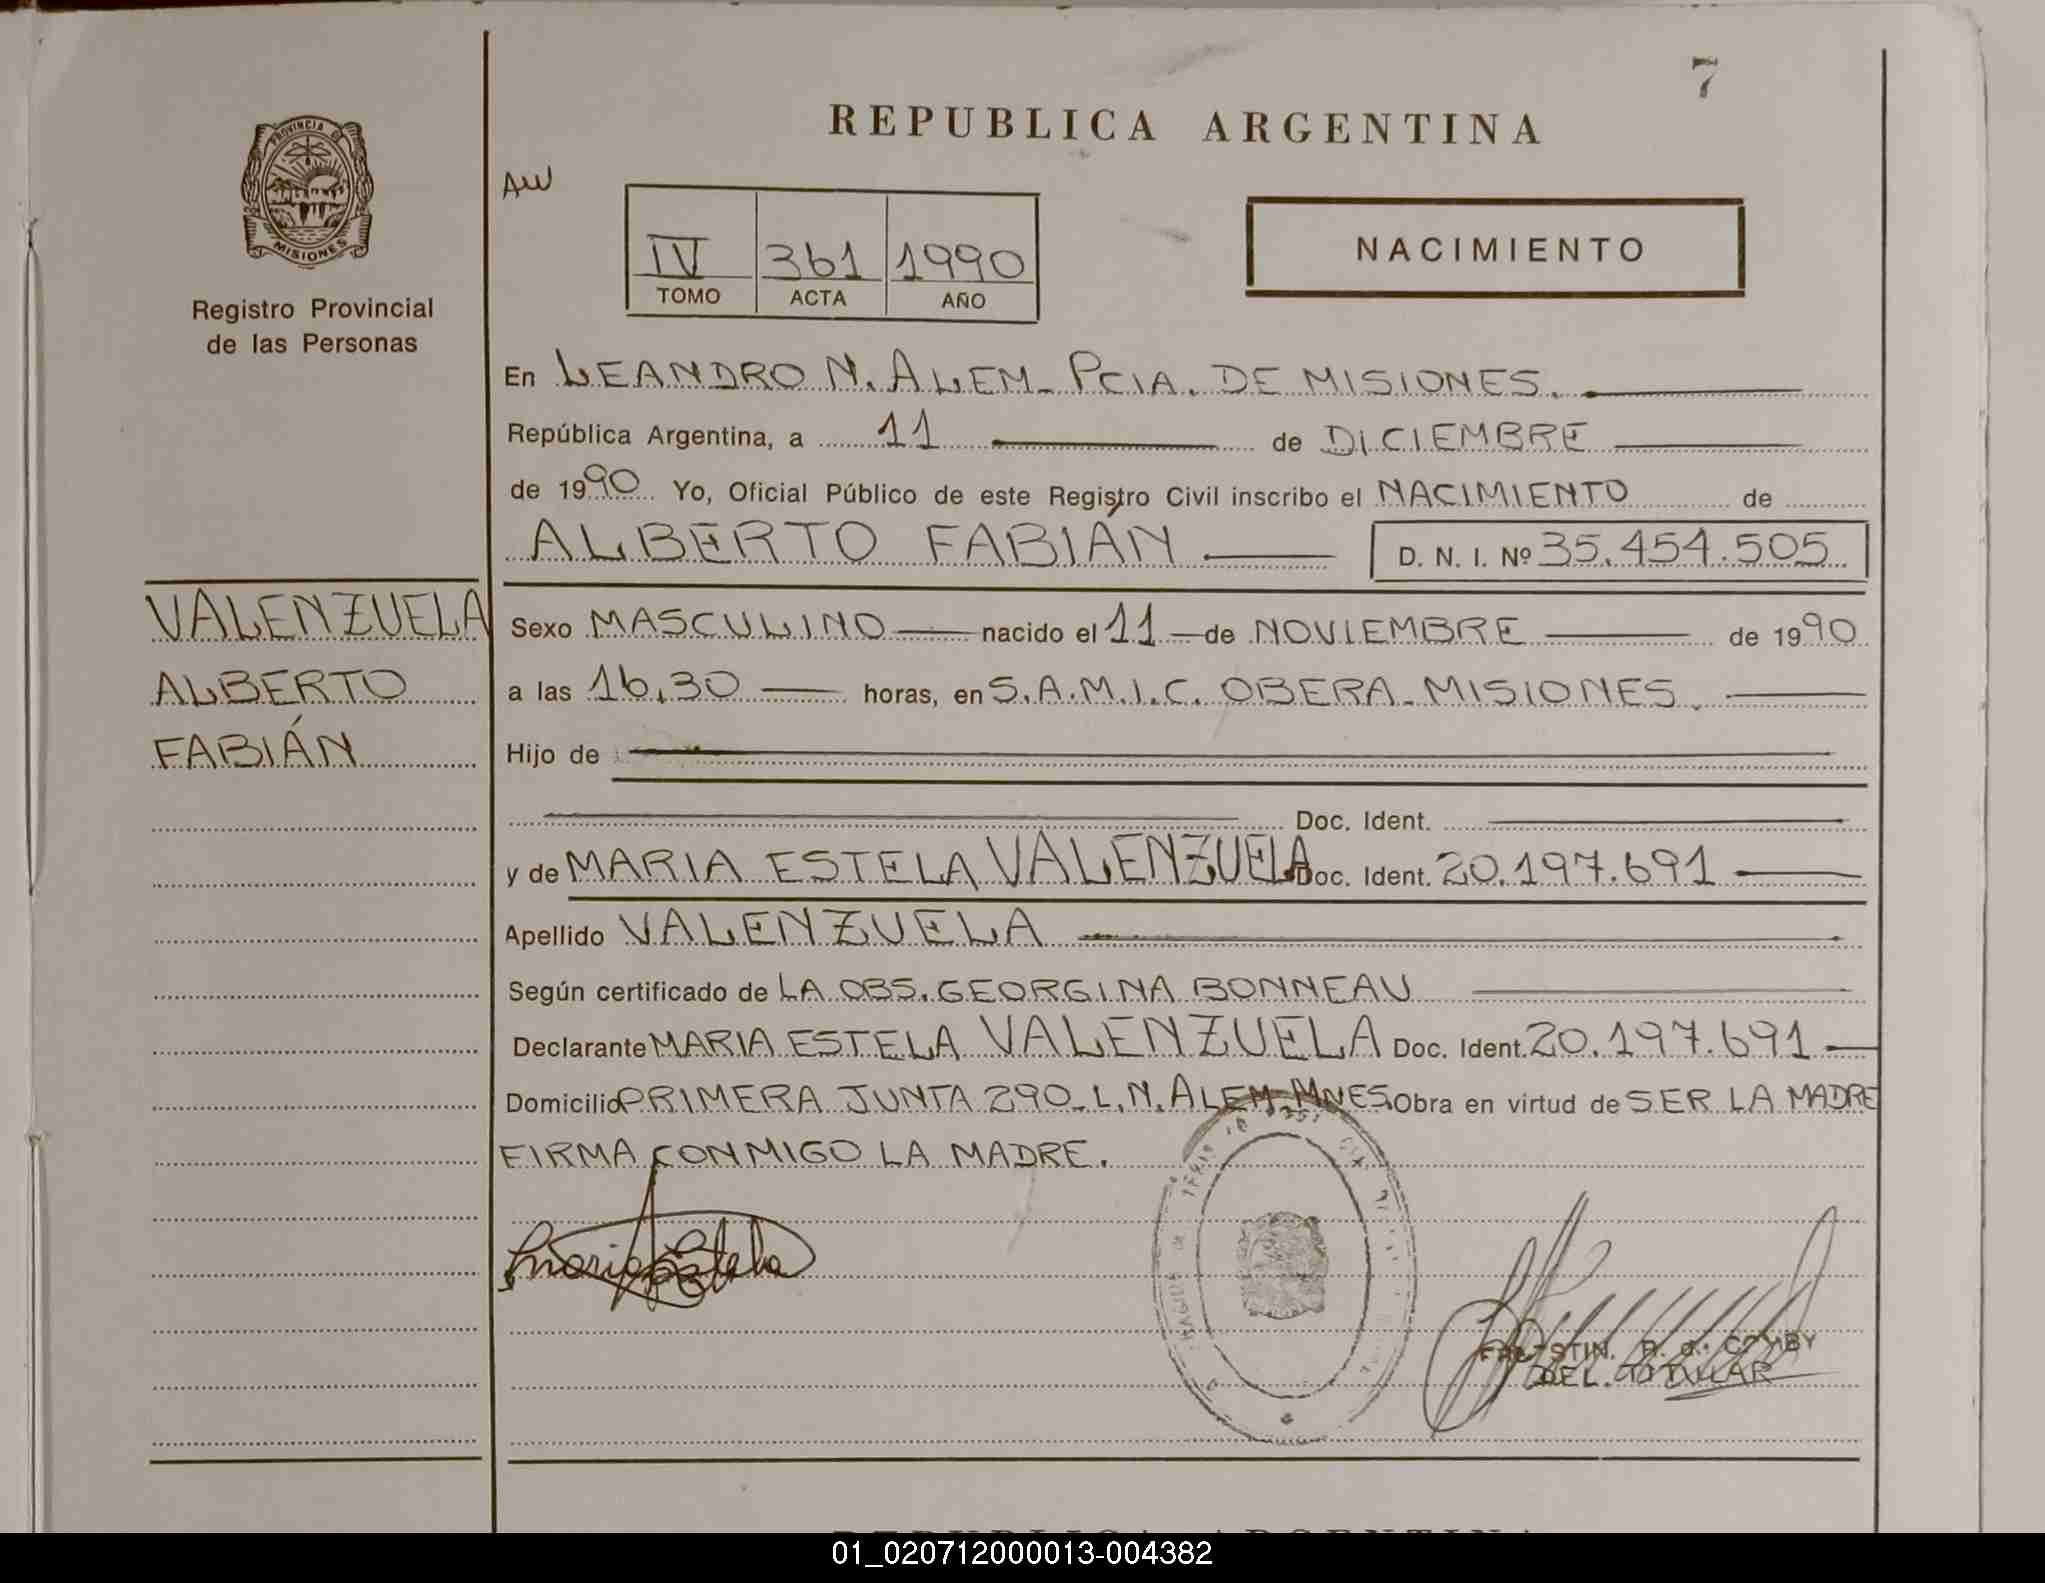 7
REPUBLICA ARGENTINA
PROVINCIA DE
MISIONES
Registro Provincial
de las Personas
IV 361 1990
TOMO ACTA AÑO
NACIMIENTO
En LEANDRO N. ALEM_ PCIA. DE MISIONES.
República Argentina, a 11 de DICIEMBRE
de 1990 Yo, Oficial Público de este Registro Civil inscribo el NACIMIENTO de
ALBERTO FABIÁN D. N. I. Nº 35.454.505
VALENZUELA
ALBERTO
FABIÁN
Sexo MASCULINO nacido el 11 de NOVIEMBRE de 1990
a las 16.30 horas, en S.A.M.I.C. OBERA_ MISIONES.
Hijo de
Doc. Ident.
y de MARIA ESTELA VALENZUELA Doc. Ident. 20.197.691
Apellido VALENZUELA
Según certificado de LA OBS. GEORGINA BONNEAU
Declarante MARIA ESTELA VALENZUELA Doc. Ident. 20.197.691
Domicilio PRIMERA JUNTA 290_ L.N. ALEM MNES. Obra en virtud de SER LA MADRE
FIRMA CONMIGO LA MADRE.
Maria Estela
DEL. TITULAR
REPUBLICA ARGENTINA
01_020712000013-004382